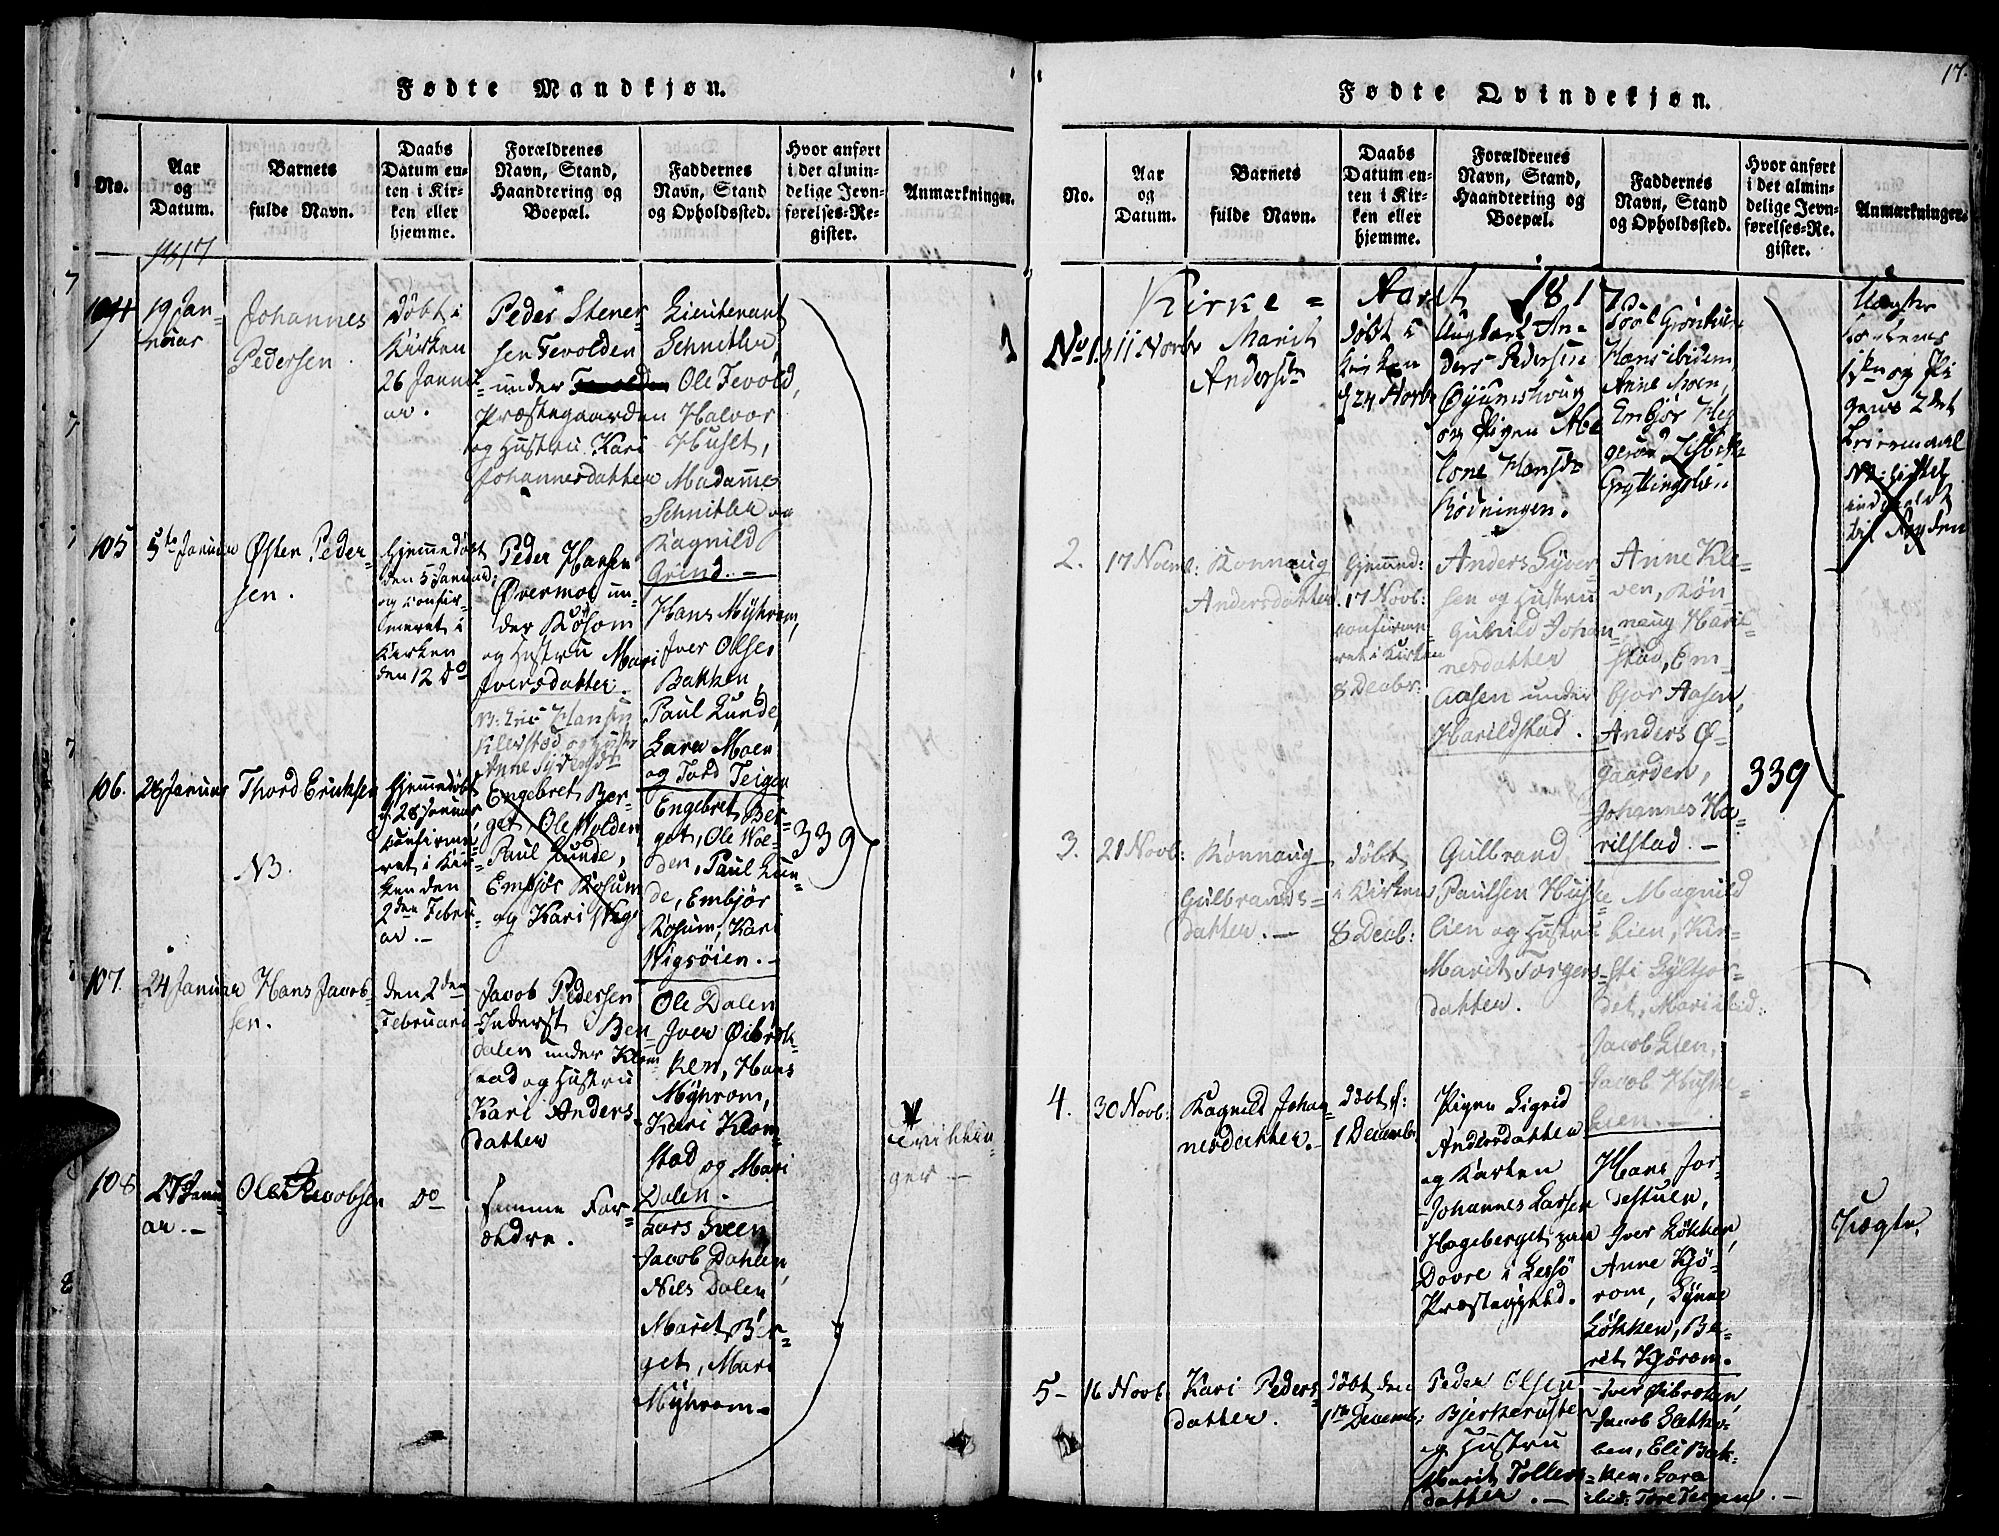 Fødte Mandkjøn.
No.
Aar
og
Datum.
Barnets
fulde Navn.
Daabs
Datum en-
ten i Kir-
ken eller
hjemme.
Forældrenes
Navn, Stand,
Haandtering og
Boepæl.
Faddernes
Navn, Stand
og Opholdssted.
Hvor anført
i det almin-
delige Jevn-
førelses-Re-
gister.
Anmærkninger.
1817
104
19 Jan-
nuar
Johannes
Pedersen.
Døbt i
Kirken
26 Janu-
ar.
Peder Stener-
sen Tevolden
under
Præstegaarden
og Hustru Kari
Johannesdatter
Lieutenant
Schnitler,
Ole Tevold,
Halvor
Huset,
Madamme
Schnitler og
Ragnild
Grind.
105
5te Januar
Østen Peder-
sen.
Hjemmedøbt
den 5 Januar
og confir-
meret i
Kirken
den 12 do
Peder Hansen
Øvermoe un-
der Kosom
og Hustru Mari
Iversdatter.
Hans Myhrom,
Iver Olsen
Bakken,
Paul Lunde,
Moen
og Tord Teigen
106.
28 Januar
Thord Eriksen
NB.
Hjemmedøbt
28 Januar
Confirme-
ret i Kir-
ken den
2den Febru-
ar.
Hansen
Klevstad og Hustr
Anne
Engebret Ber-
get, Ole Wolden,
Paul Lunde,
Embjør Kosum
og Kari Wigs
Engebret Ber-
get, Ole Wol-
den, Paul Lun-
de, Embjør
Kosum, Kari
Wigsøien.
339
107.
24 Januar
Hans Jacob-
sen.
den 2den
Februari
Jacob Pedersen
Inderst Ben-
dalen under Klom
stad og Hustru
Kari Anders-
datter
Ole Dalen
Iver Øibræk-
ken, Hans
Myhrom,
Kari Klom-
stad og Mari
Dalen.
Tvillin-
ger
108
24 Janu-
ar.
Ole Jacobsen
do
Samme For-
ældre.
Lars Sveen
Jacob Dahlen,
Nils Dalen
Marit Ber-
get, Mari
Myhrom
17.
Fødte Qvindekjøn.
No.
Aar
og
Datum.
Barnets
fulde Navn.
Daabs
Datum en-
ten i Kir-
ken eller
hjemme.
Forældrenes
Navn, Stand,
Haandtering og
Boepæl.
Faddernes
Navn, Stand
og Opholdssted.
Hvor anført
i det almin-
delige Jevn-
førelses-Re-
gister.
Anmærkninger.
Kirke-Aaret 1817
No 1
11 Novbr
Marit
Andersdr
døbt i
Kirken
d 24 Novbr
Ungkarl An-
ders Pedersen
og Pigen
Hansdr
Rødningen.
Hans ibidem,
Anne Moen,
Embjør Heg
Uægte
2det
Leiermaal
2.
17 Novemb:
Ronnaug
Andersdatter
Hjemmed:
17 Novb:
confirme-
ret i Kirken
8 Decbr:
Anders Syver-
sen og Hustru
Gunild Johan-
nesdatter
Aasen under
Harildstad.
Anne Kle-
ven, Røn-
naug Haril-
stad, Em-
bjør Aasen,
Anders Ø-
gaarden,
Johannes Ha-
rilstad.
339
3.
21 Novb:
Rønnaug
Gulbrands-
datter.
døbt
i Kirken
8 Decb:
Gulbrand
Paulsen Huske-
lien og Hustru
Marit Torgers-
datter.
Magnild
Lien, Kir-
sti Gyltjor-
det, Mari ibid:
Jacob Lien,
Jacob Huske-
lien.
4.
30 Novb:
Ragnild Johan-
nesdatter.
døbt d:
1 Decemb:
Pigen Sigrid
Andersdatter
og Karlen
Johannes Larsen
Hageberget paa
Dovre i Lessø
Præstegjeld.
Hans Jor-
destuen,
Iver Løkken,
Anne Kjø-
rom, Synne
Løkken, Be-
rit Kjørom.
Uægte.
5
16 Novb:
Kari Peders-
datter.
døbt den
1ste Decemb:
Peder Olsen
og Hustru
Marit Tollevs-
datter.
Iver Øibrekken,
Jacob
ken, Eli Bak-
ken,
ibid: Tore Teigen.